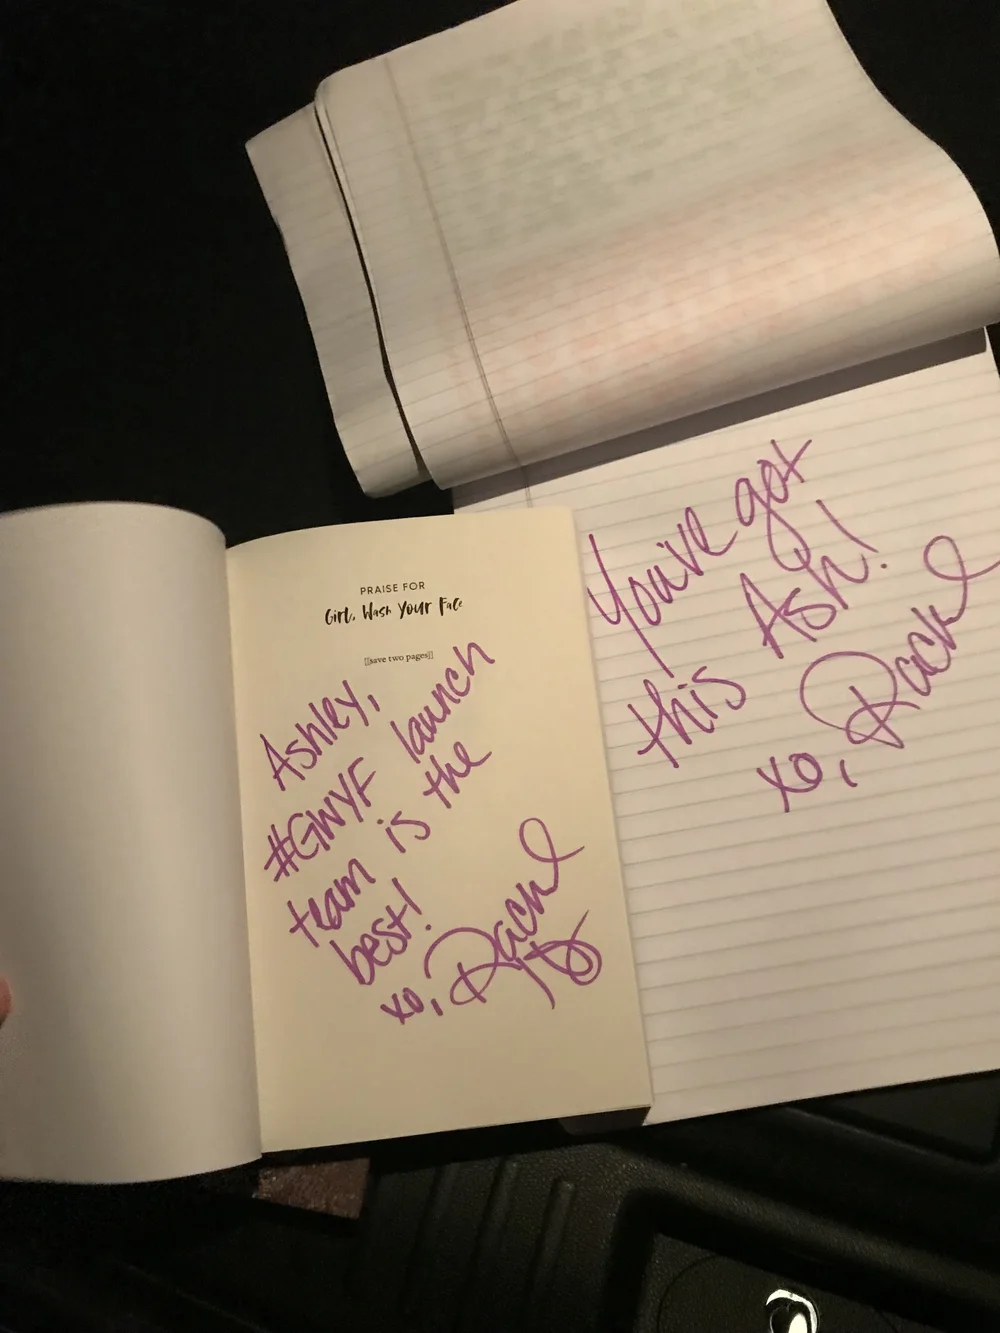 PRAISE FOR
Girl, Wash Your Face
[[save two pages]]
Ashley,
#GWYF launch
team is the
best!
xo, Rachel
You've got
this Ash!
xo, Rachel